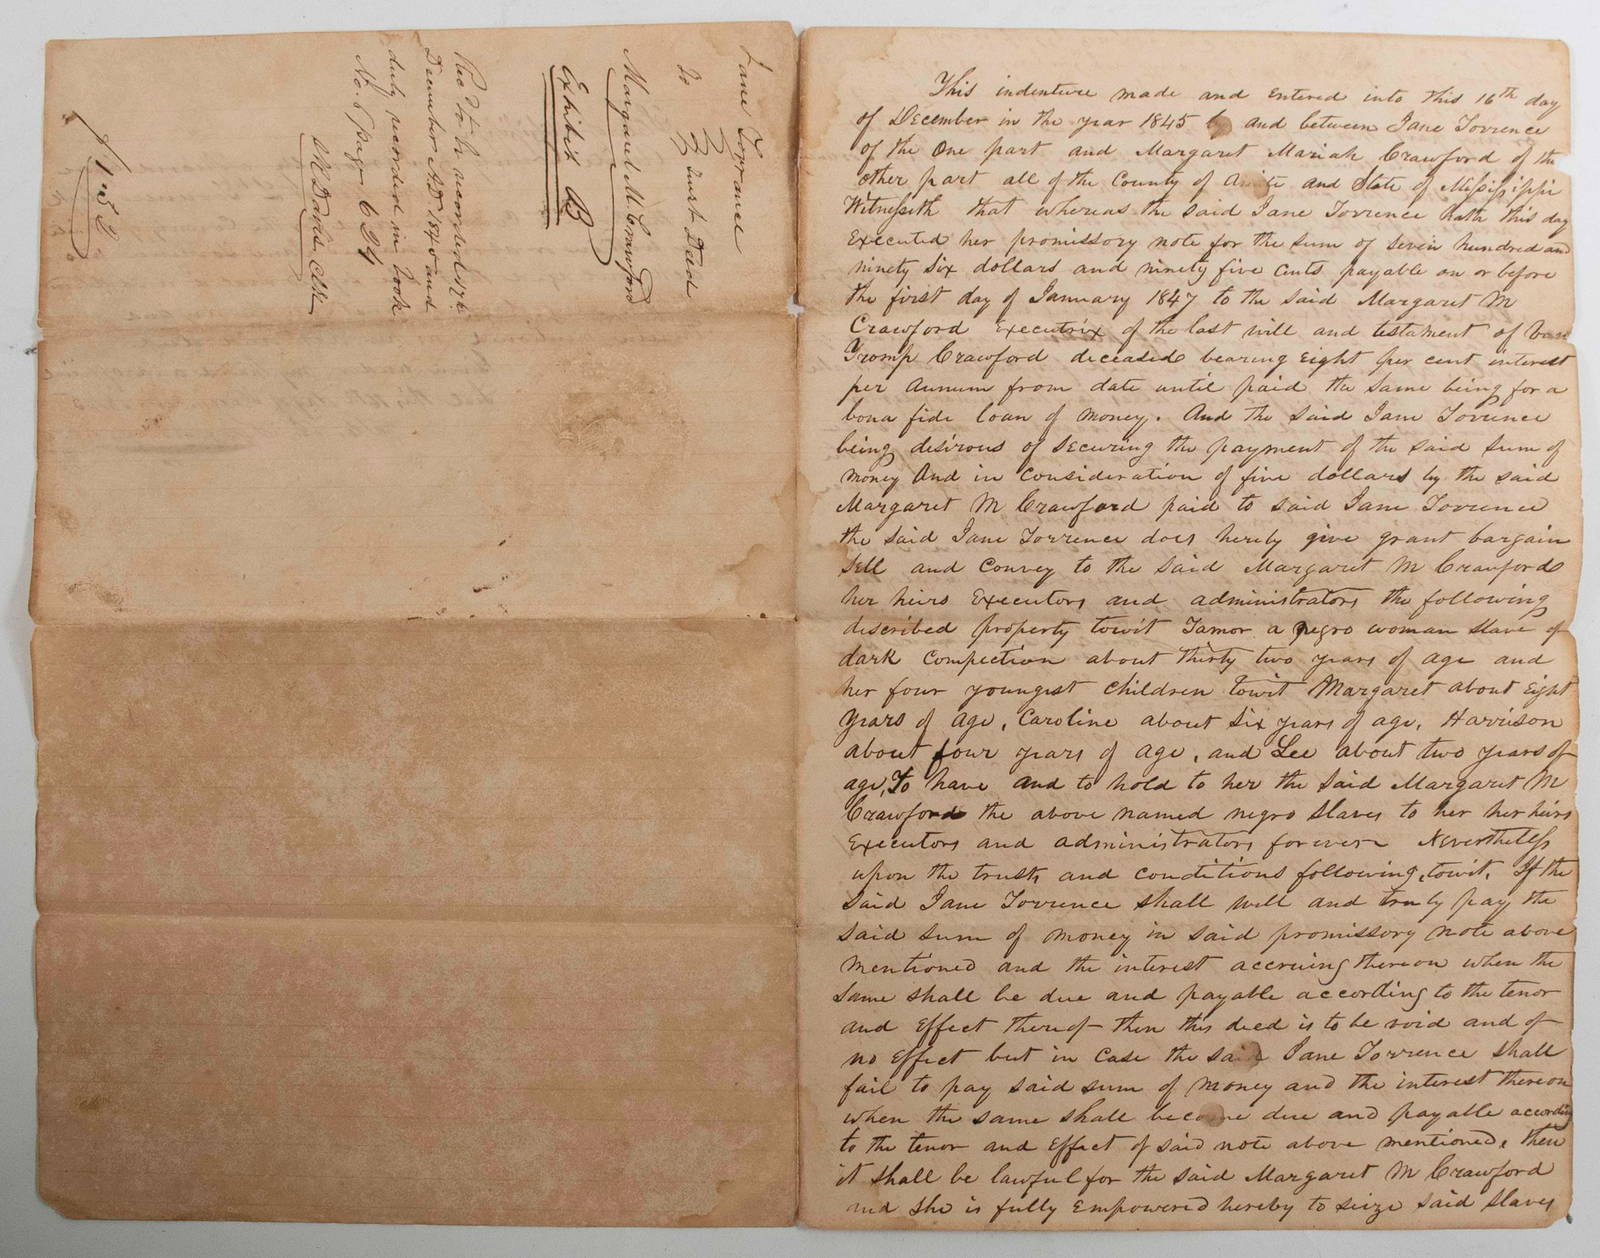 Jane Torrance
to } Trust Deed
Margaret M. Crawford
Exhibit B
Rec'd to be recorded 17th
December AD 1845 and
duly recorded in book
No. 6 page 634
Davis Clk
$1 35
This indenture made and entered into this 16th day
of December in the year 1845 by and between Jane Torrence
of the one part and Margaret Mariah Crawford of the
other part all of the County of Amite and State of Mississippi
Witnesseth that whereas the said Jane Torrence hath this day
Executed her promissory note for the sum of seven hundred and
ninety six dollars and ninety five cents payable on or before
the first day of January 1847 to the said Margaret M
Crawford Executrix of the last will and testament of Van
Tromp Crawford deceased bearing Eight per cent interest
per annum from date until paid the same being for a
bona fide loan of money. And the said Jane Torrence
being desirous of securing the payment of the said sum of
money And in consideration of five dollars by the said
Margaret M Crawford paid to said Jane Torrence
the said Jane Torrence does hereby give grant bargain
sell and convey to the said Margaret M Crawford
her heirs Executors and administrators the following
described property towit Tamor a negro woman slave of
dark compection about thirty two years of age and
her four youngest children towit Margaret about Eight
years of age, Caroline about six years of age, Harrison
about four years of age, and Lee about two years of
age, To have and to hold to her the said Margaret M
Crawford the above named negro slaves to her her heirs
Executors and administrators forever Nevertheless
upon the trusts and conditions following, towit, If the
said Jane Torrence shall well and truly pay the
said sum of money in said promissory note above
mentioned and the interest accruing thereon when the
same shall be due and payable according to the tenor
and Effect thereof then this deed is to be void and of
no Effect but in case the said Jane Torrence shall
fail to pay said sum of money and the interest thereon
when the same shall become due and payable according
to the tenor and Effect of said note above mentioned, then
it shall be lawful for the said Margaret M Crawford
and she is fully Empowered hereby to seize said slaves